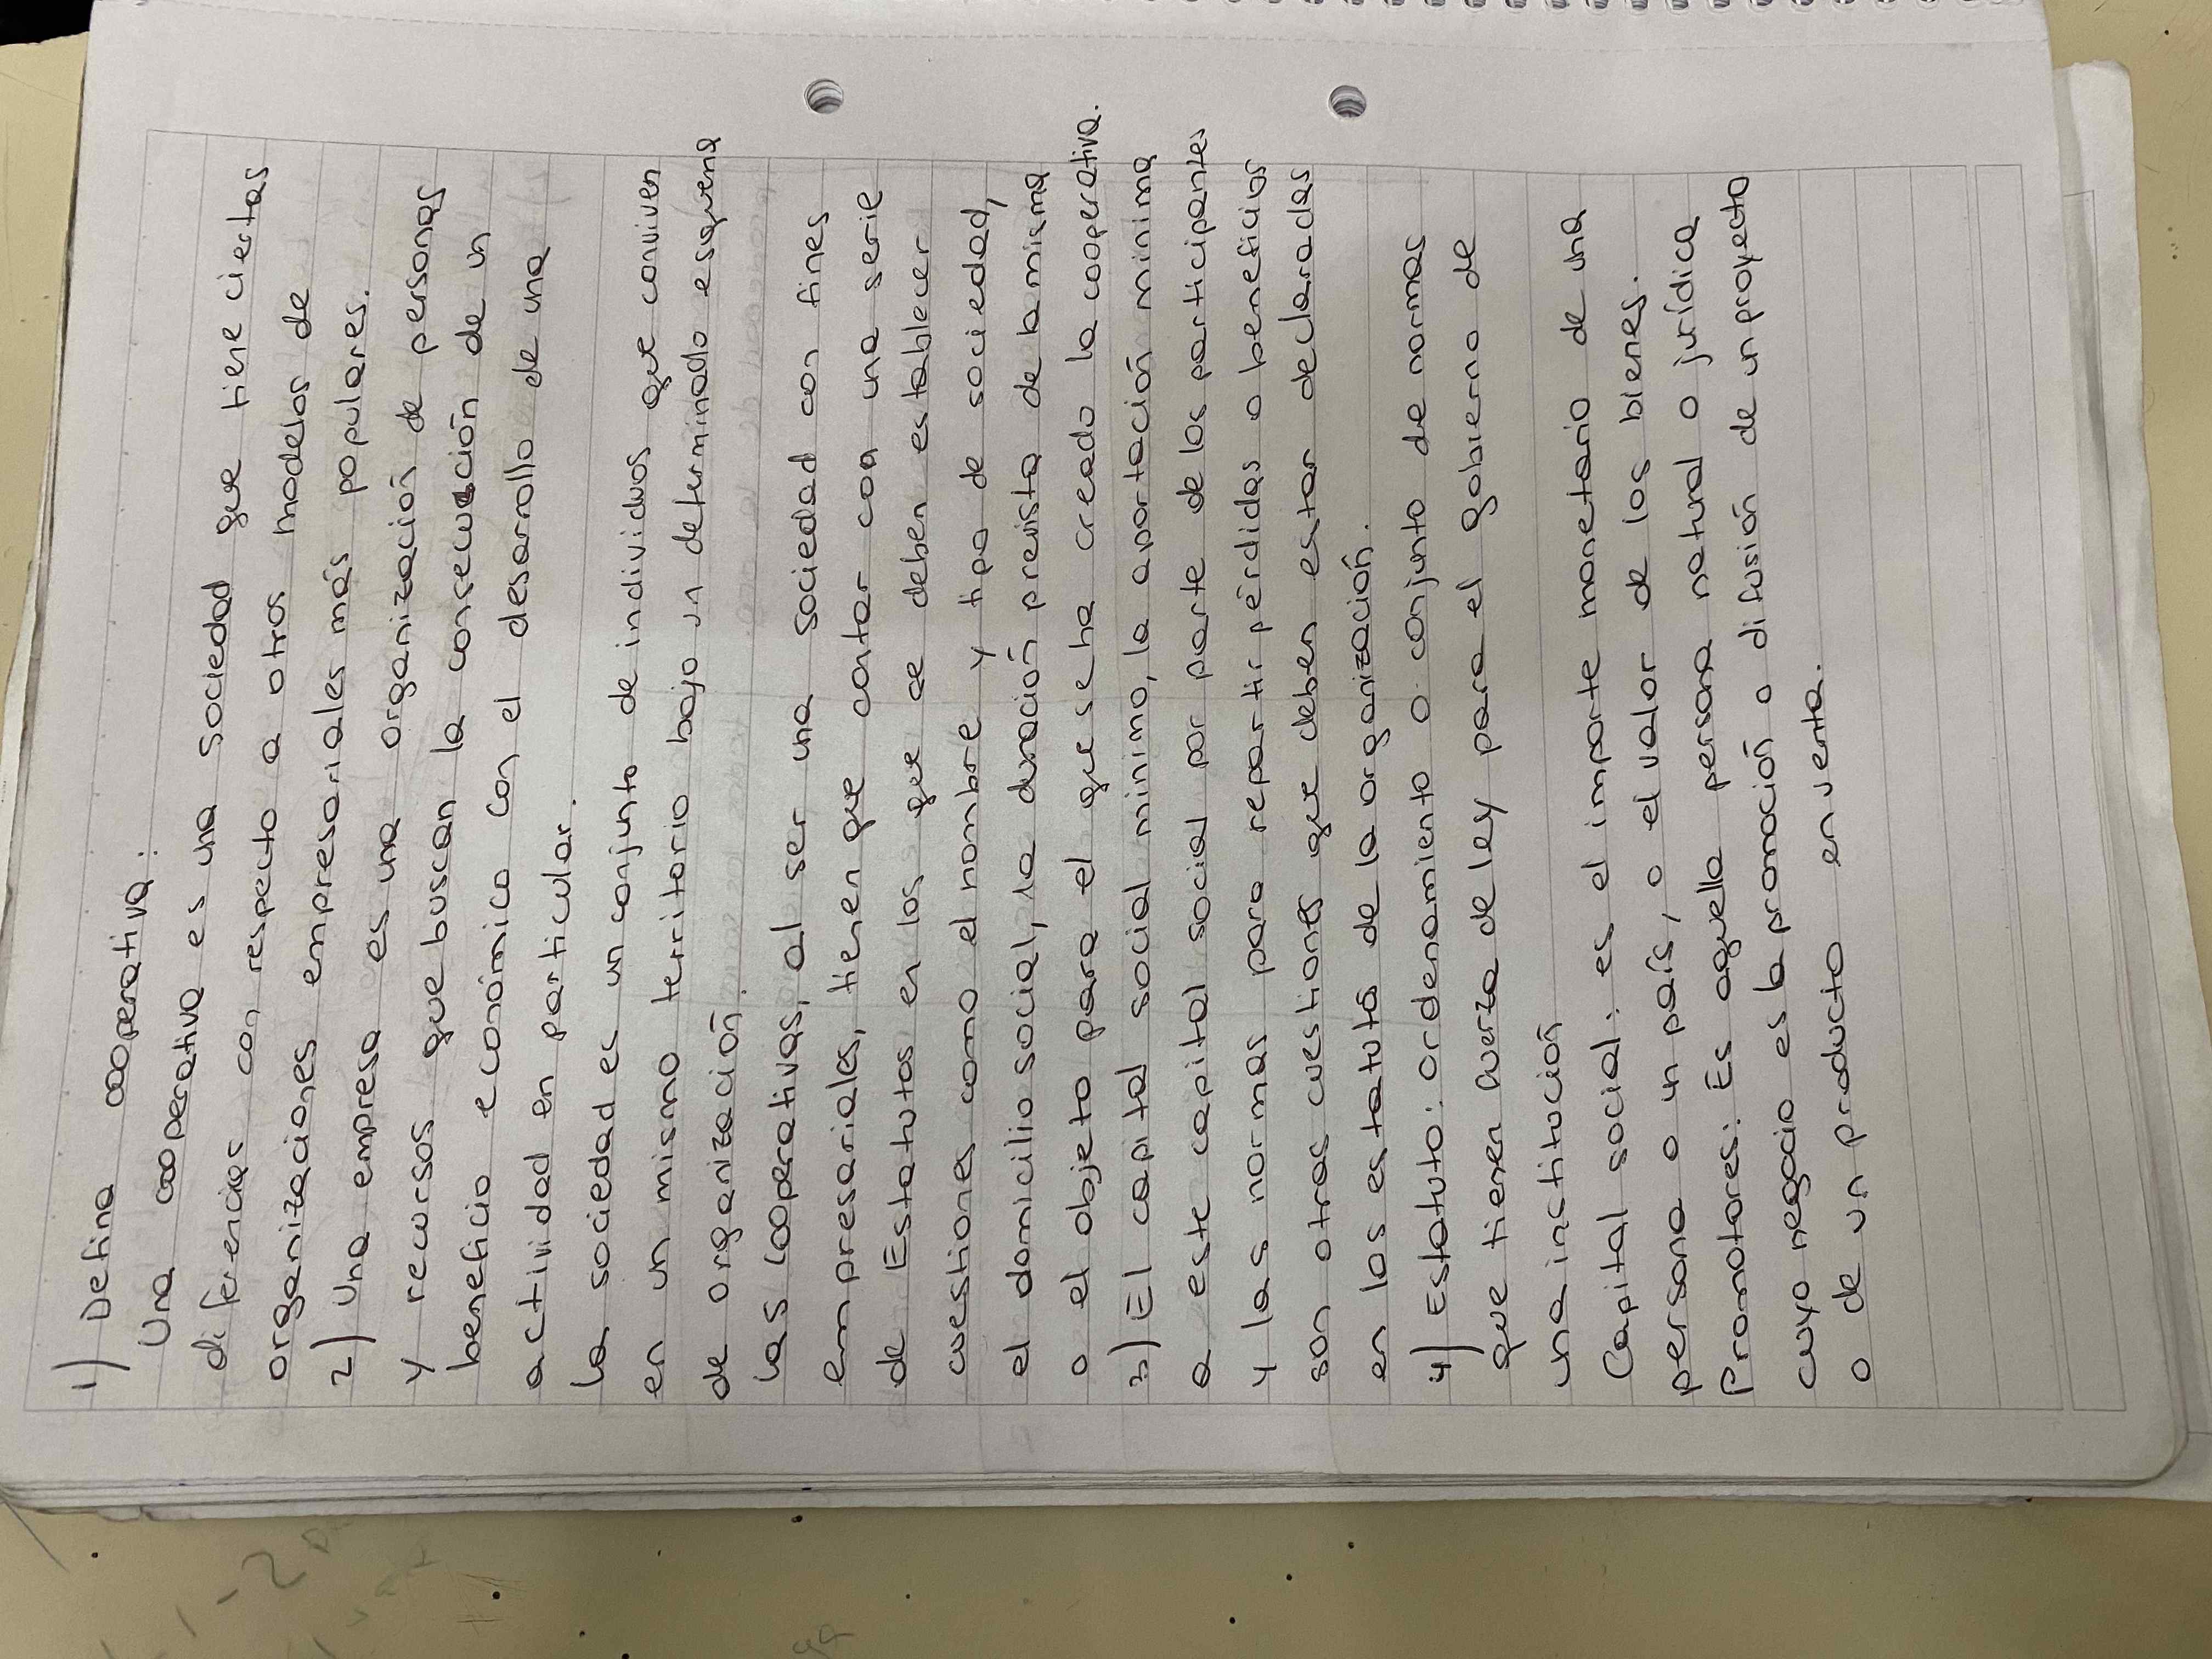 1) Defina cooperativa:
Una cooperativa es una sociedad que tiene ciertas
diferencias con respecto a otros modelos de
organizaciones empresariales más populares.
2) Una empresa es una organización de personas
y recursos que buscan la consecución de un
beneficio económico con el desarrollo de una
actividad en particular.
La sociedad es un conjunto de individuos que conviven
en un mismo territorio bajo un determinado esquema
de organización.
Las cooperativas, al ser una sociedad con fines
empresariales, tienen que contar con una serie
de Estatutos en los que se deben establecer
cuestiones como el nombre y tipo de sociedad,
el domicilio social, la duración prevista de la misma
o el objeto para el que se ha creado la cooperativa.
3) El capital social minimo, la aportación minima
a este capital social por parte de los participantes
y las normas para repartir pérdidas o beneficios
son otras cuestiones que deben estar declaradas
en los estatutos de la organización.
4) Estatuto: ordenamiento o conjunto de normas
que tienen fuerza de ley para el gobierno de
una institución
Capital social: es el importe monetario de una
persona o un país, o el valor de los bienes.
Promotores: Es aquella persona natural o jurídica
cuyo negocio es la promoción o difusión de un proyecto
o de un producto en venta.